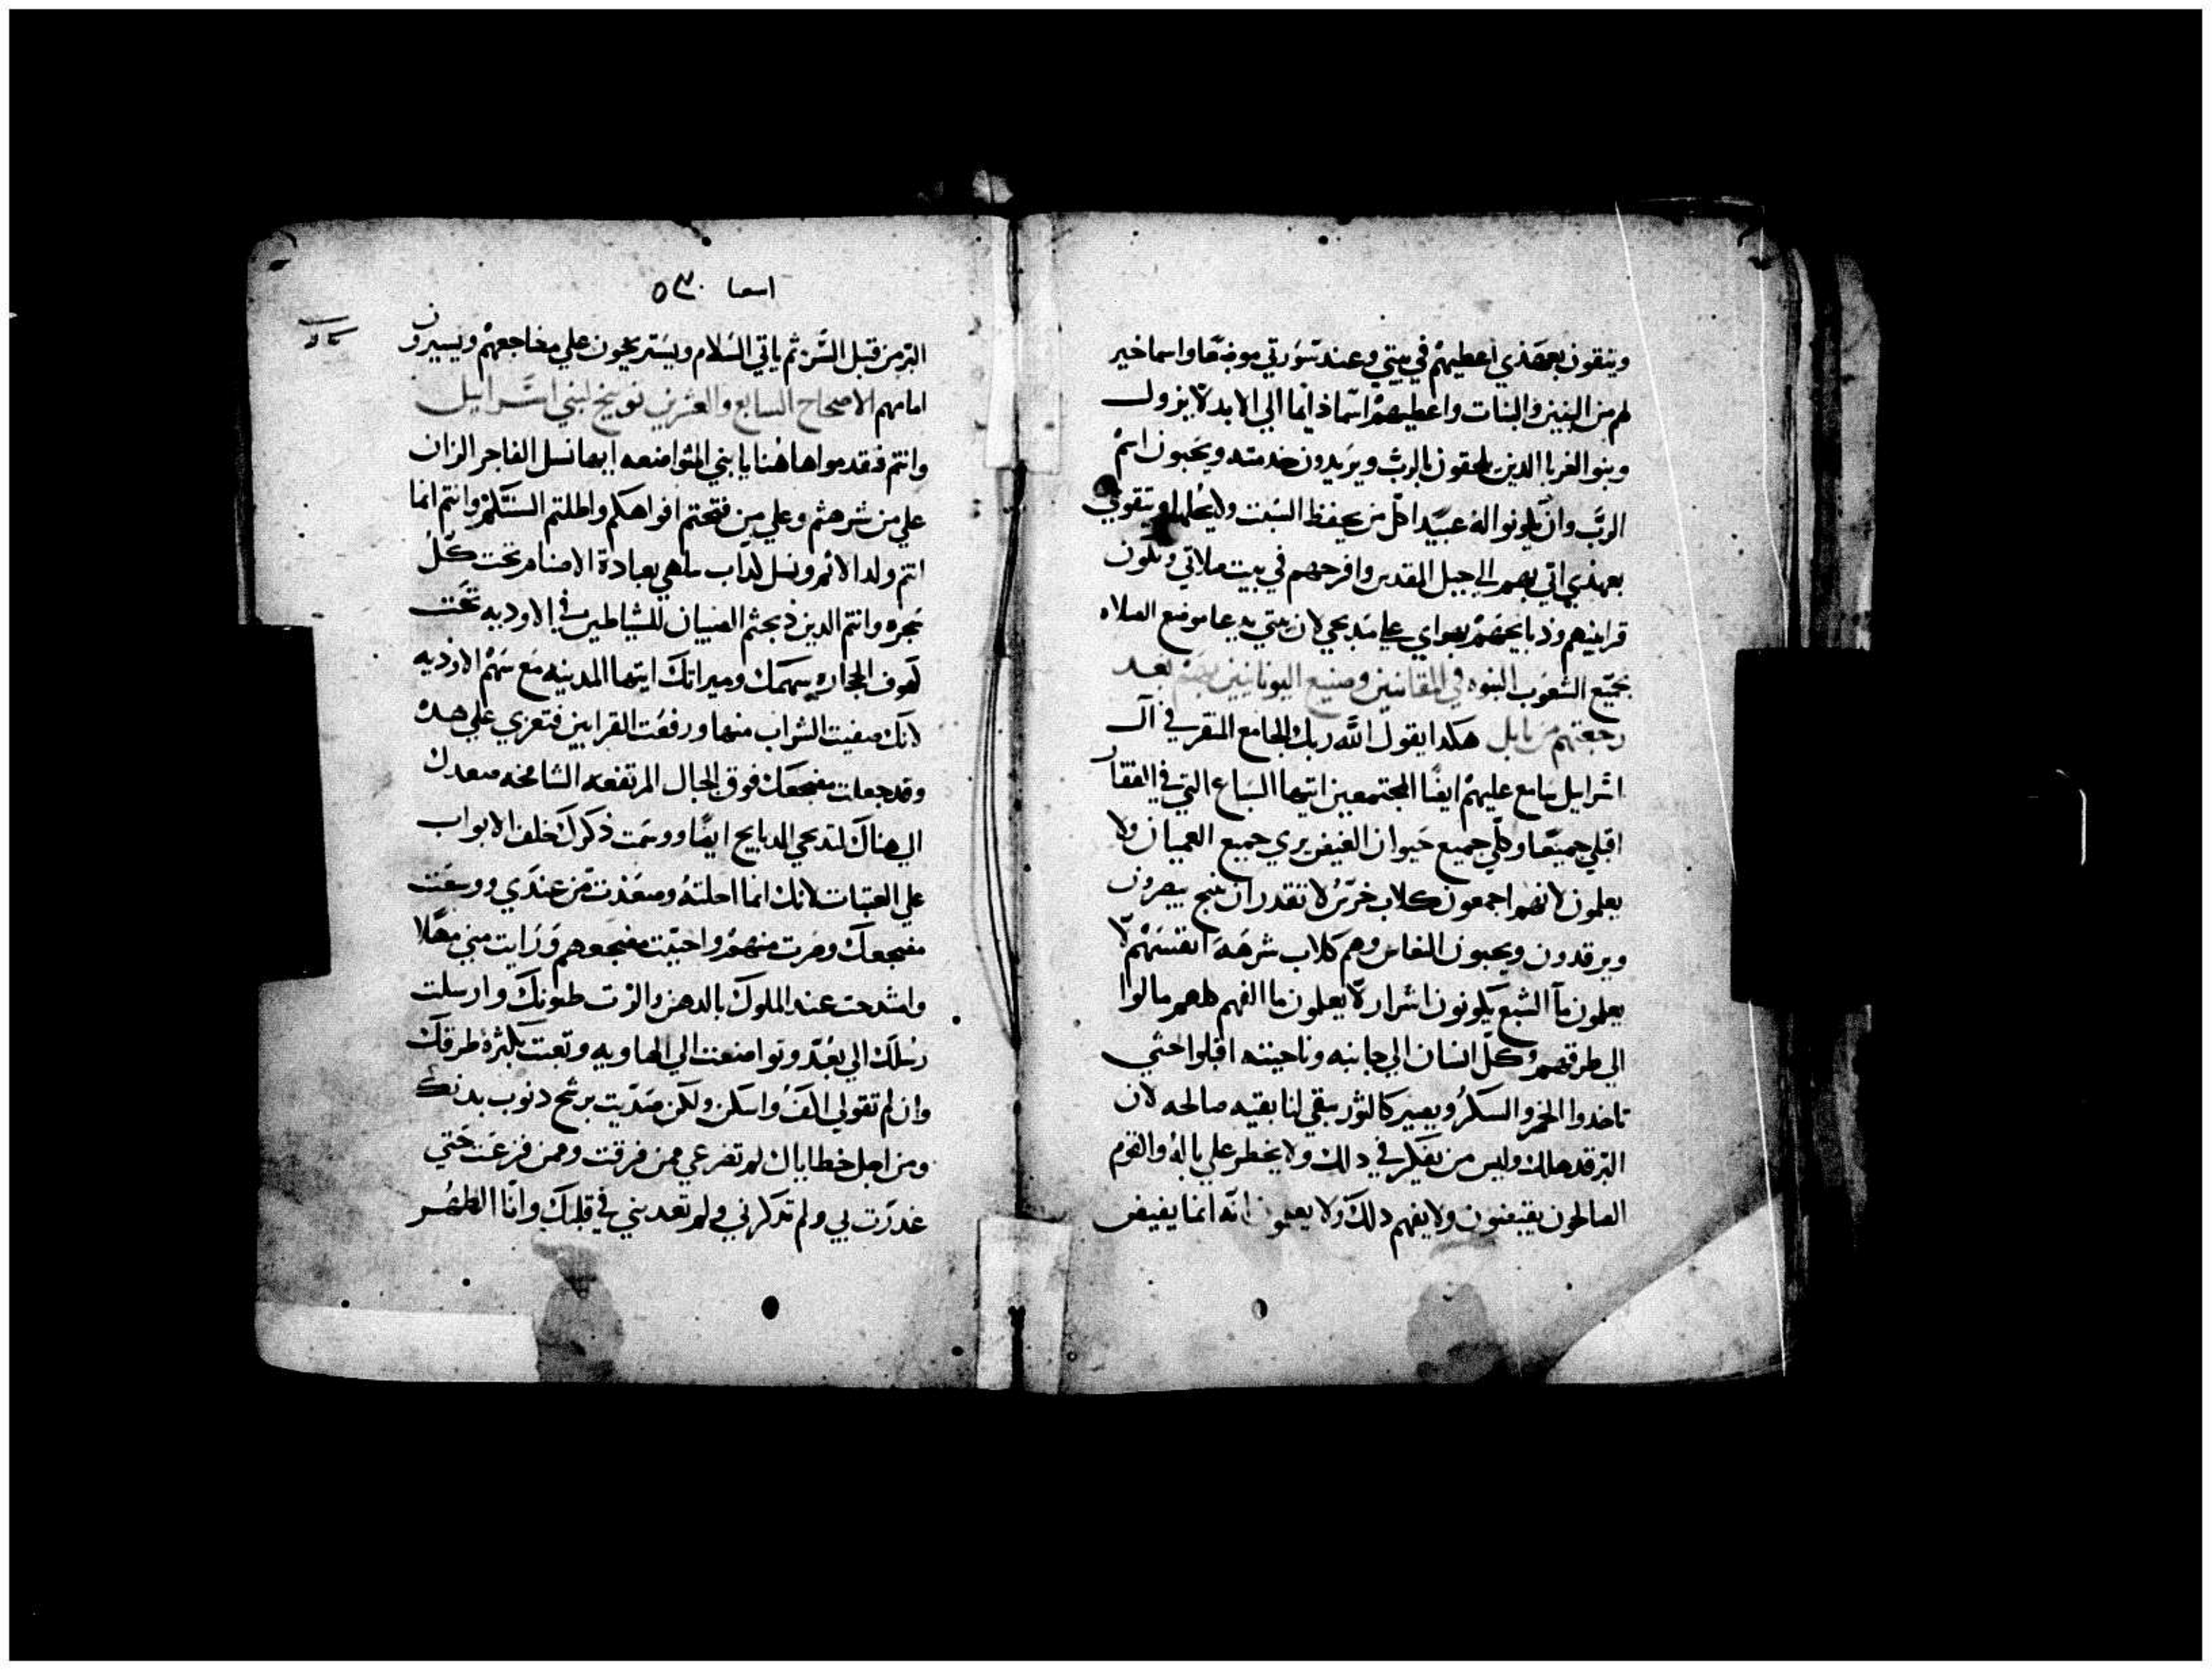 ويتقون بعهدي اعطيهم في بيتي وعند سورتي موضعا واسما خير
لهم من البنين والبنات واعطيهم اسما دايما الي الابد لا يزول
وبنو الغربا الدين يلحقون بالرب ويريدون خدمته ويحبون اسم
الرب وان يكونوا له عبيدا كل من يحفظ السبت ولا يحلها ويتقوي
بعهدي اتي بهم الي جبل القدس وافرحهم في بيت صلاتي وتكون
قرابينهم ودبايحهم بهواي علي مدبحي لان بيتي يدعا موضع الصلاه
لجميع الشعوب النبوه في وصنيع اليونانيين بهم بعد
رجعتهم من بابل هكدا يقول الله ربك الجامع المتفرقي ال
اسرايل ساجمع عليهم ايضا المجتمعين ايتها السباع التي في القفار
اقبلي جميعا وكلي جميع حيوان الغيض يري جميع العميان ولا
يعلمون لانهم اجمعون كلاب خرس لا تقدر ان تنبح يبصرون
ويرقدون ويحبون النعاس وهم كلاب شرهة انفسهم لا
يعلمون ما الشبع يكونون اشرار لا يعلمون ما الفهم كلهم مالوا
الي طرقهم وكل انسان الي جانبه وناحيته اقبلوا حتي
ناخدوا الخمر والسكر ويصير كالثور يبقي لنا بقيه صالحه لان
البر قد هلك وليس من يفكر في دلك ولا يخطر علي باله والقوم
الصالحون يقبضون ولا يفهم دلك ولا يعلمون انه انما يقبض
اسعيا ٥٣٠
البر من قبل الشر ثم ياتي السلام ويستريحون علي مضاجعهم ويسيرون
امامهم الاصحاح السابع والعشرين توبيخ لبني اسرايل
وانتم فتقدموا هاهنا يا بني المتواضعه ايها نسل الفاجر الزان
علي من شرهتم وعلي من فتحتم افواهكم واطلتم السنتكم وانتم انما
انتم ولد الاثم ونسل كداب ملهي بعبادة الاصنام تحت كل
شجره وانتم الدين دبحتم الصبيان للشياطين في الاوديه تحت
كهوف الحجاره سهمك وميراتك ايتها المدينه مع سهم الاوديه
لانك صفيت الشراب منها ورفعت القرابين فتعزي علي هده
وقد جعلت مضجعك فوق الجبال المرتفعه الشامخه صعدك
الي هناك لتدبحي الدبايح ايضا ووسمت دكرك خلف الابواب
علي العتبات لانك انما احللته وصعدت من عندي ووسعت
مضجعك وصرت منهم واحببت مضجعهم ورايت مني مهلا
وامتدحت عند الملوك بالدهن والزت طيونك وارسلت
رسلك الي بعد وتواضعت الي الهاويه وتعبت بكثرة طرقك
وان لم تقولي اكف واسكن ولكن صديت برشح دنوب بدنك
ومن اجل خطاياك لم تضرعي ممن فرقت وممن فزعت حتي
غدرت بي ولم تدكرني ولم تعديني في قلبك وانا الطهر